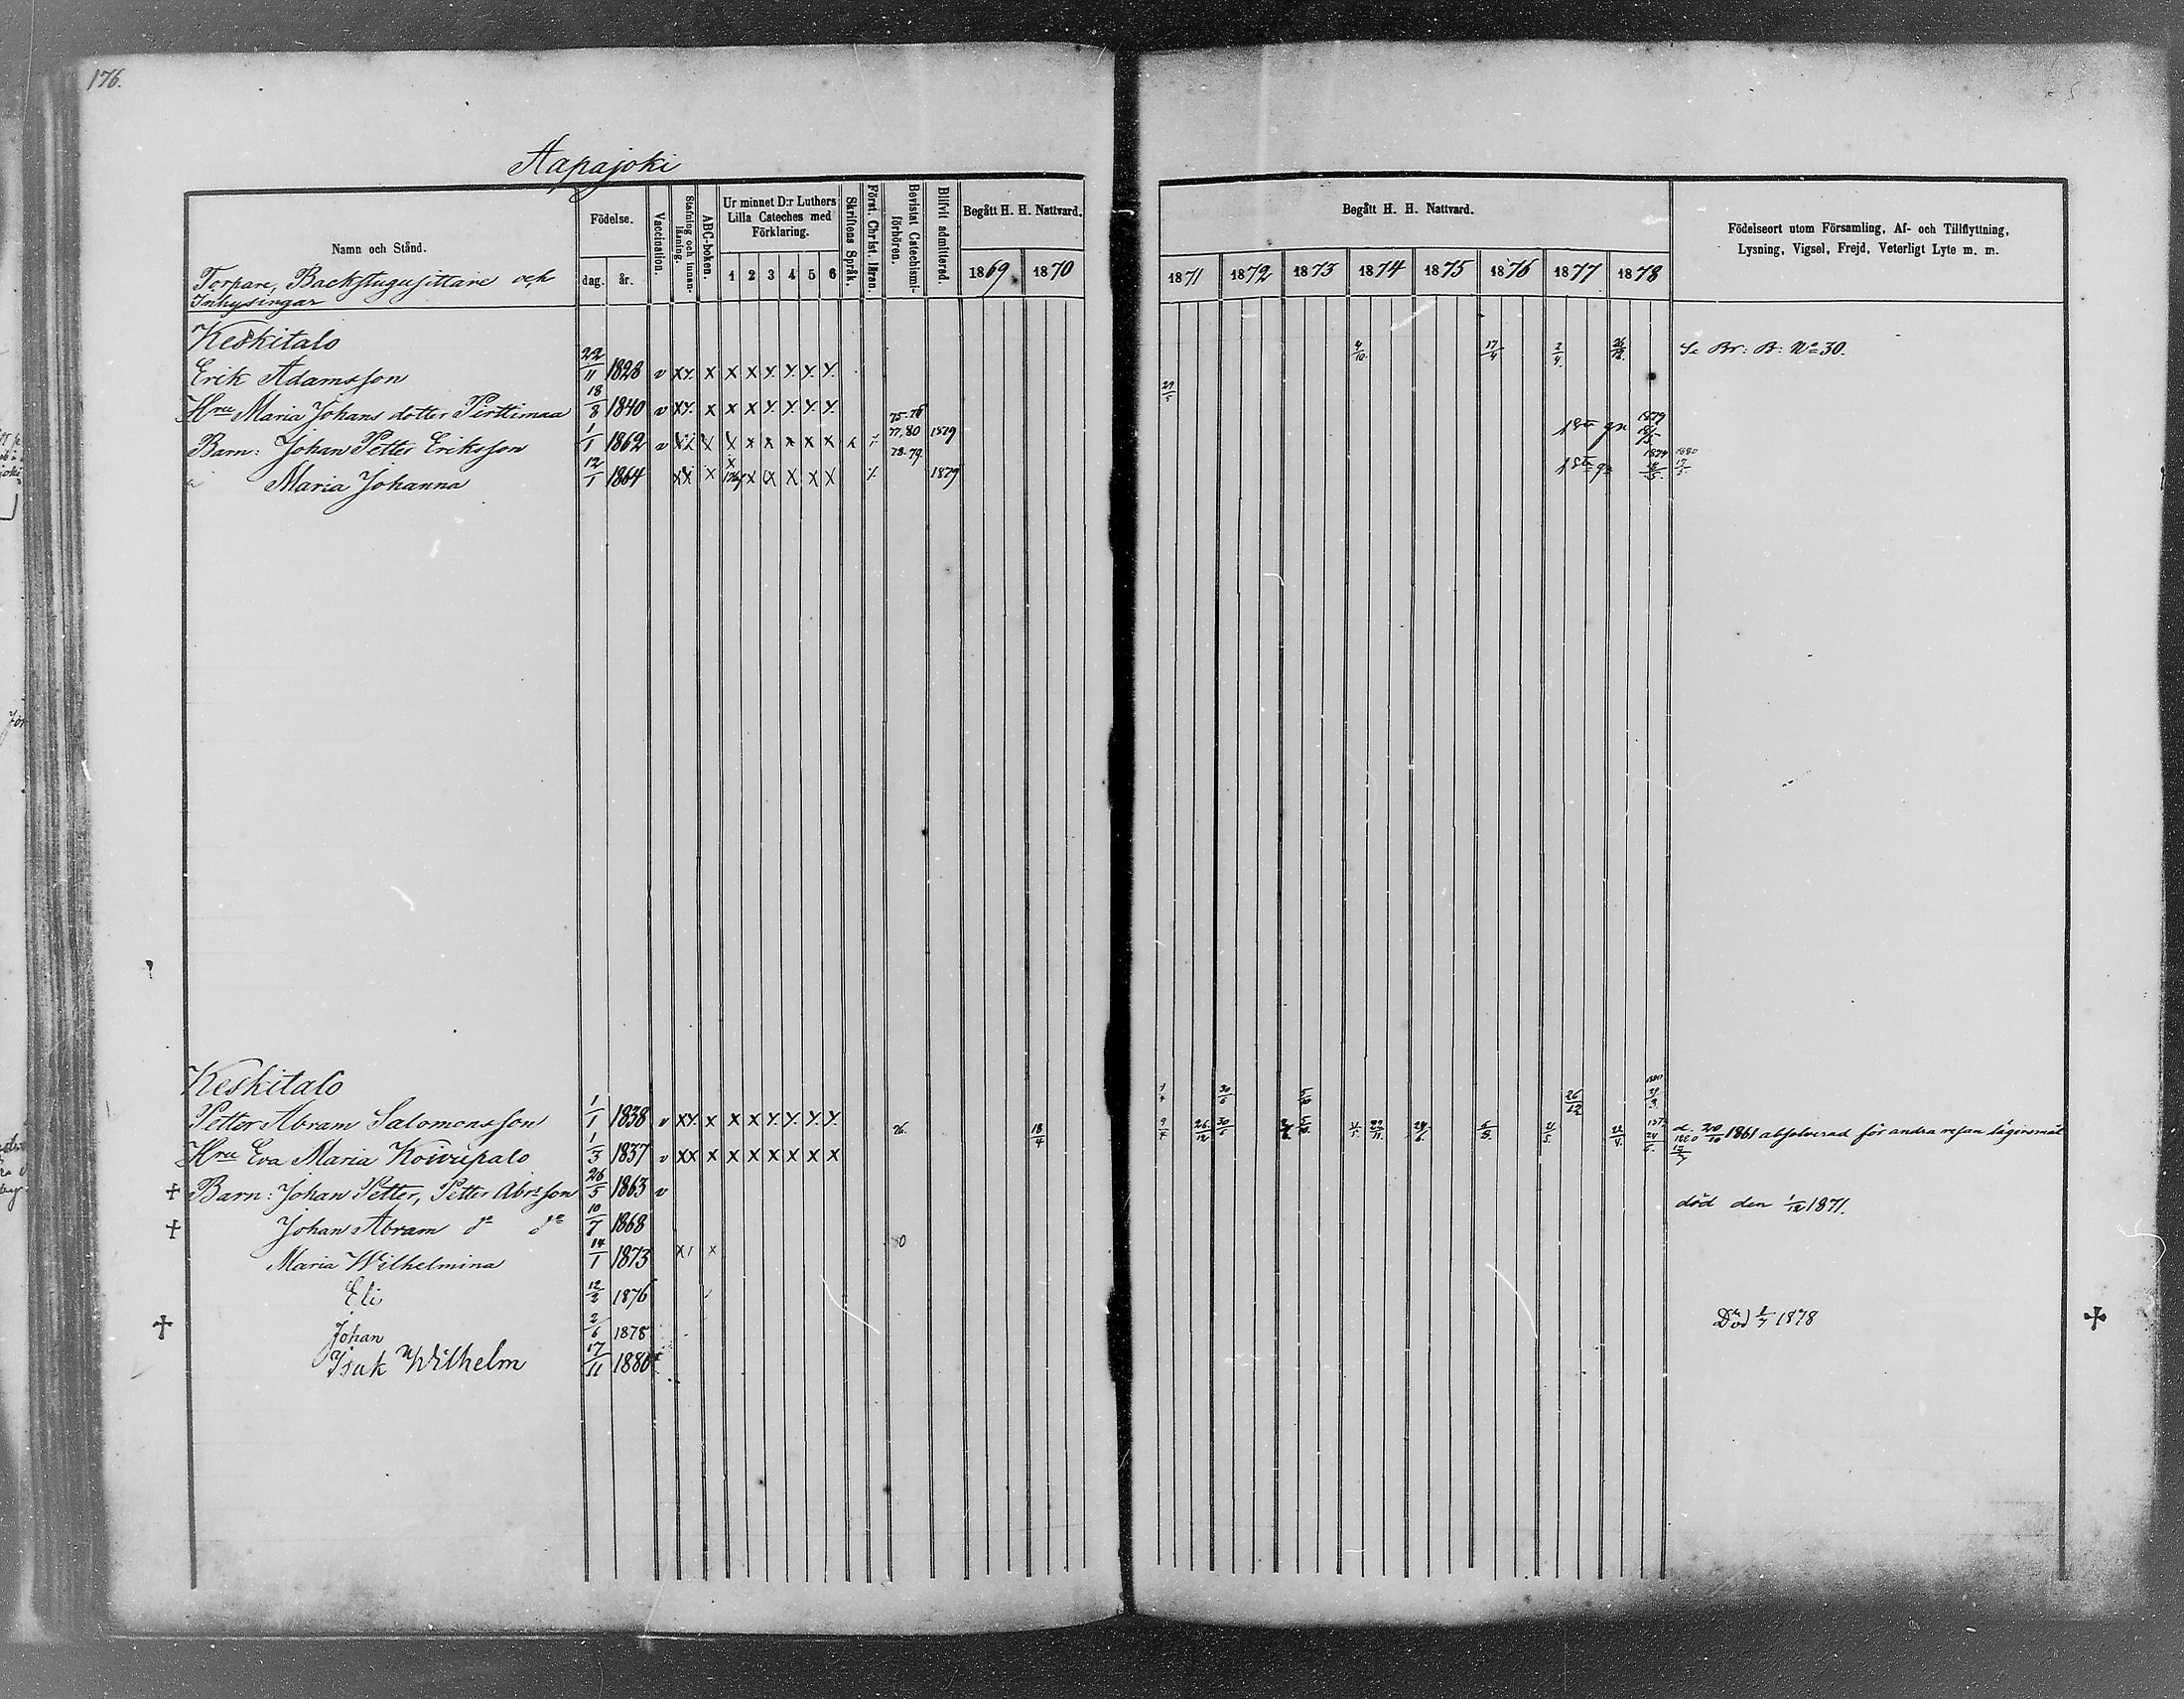 176.
Aapajoki
Namn och Stånd.
Födelse.
dag. år.
Vaccination.
Stafning och innan-läsning.
ABC-boken.
Ur minnet D:r Luthers Lilla Cateches med Förklaring.
1 2 3 4 5 6
Skriftens Språk.
Först. Christ. läran.
Bevistat Catechismi-förhören.
Blifvit admitterad.
Begått H. H. Nattvard.
1869 1870
Begått H. H. Nattvard.
1871 1872 1873 1874 1875 1876 1877 1878
Födelseort utom Församling, Af- och Tillflyttning,
Lysning, Vigsel, Frejd, Veterligt Lyte m. m.
Torpare, Backstugusittare och
Inhysingar
Keskitalo
Erik Adamsson 22/11 1828 v x y. x x x y. y. y. y. 4/10 17/4 2/4 Se Br: B: No 30.
Hru Maria Johans dotter Perttimaa 18/8 1840 v x y. x x x y. y. y. y.
Barn: Johan Petter Eriksson 1/1 1862 v x x x x x x x 75.76 77,80 1879 1879
Maria Johanna 12/1 1864 x x x x x x x x 78.79. 1879 1879 1880
Keskitalo
Petter Abram Salomonsson 1/1 1838 v x y. x x x y. y. y. y. 30/6 26/12
Hru Eva Maria Koivupalo 1/3 1837 v x x x x x x x x x 76. 18/4 9/4 26/12 30/6 24/6 d. 20/10 1861 absolverad för andra resan lägersmål
Barn: Johan Petter, Petter Abr:sson 26/5 1863 v död den 1/12 1871.
Johan Abram do do 10/7 1868
Maria Wilhelmina 14/1 1873
Eli 12/2 1876
Johan 2/6 1878 Död 1/7 1878
Isak Wilhelm 17/11 1880